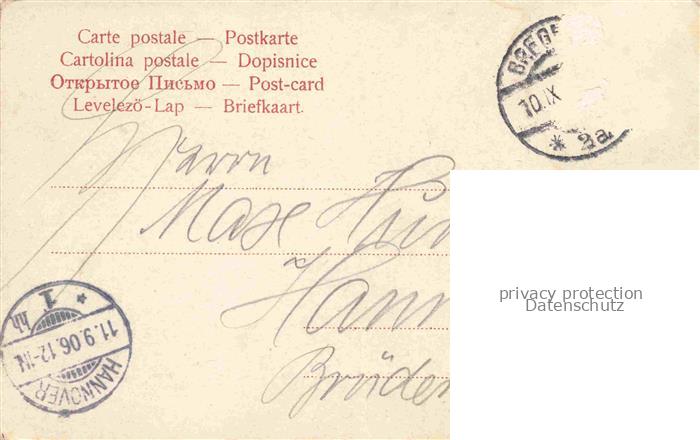 Carte postale — Postkarte
Cartolina postale — Dopisnice
Открытое Письмо — Post-card
Levelezö-Lap — Briefkaart.
BREGE
10.IX
* 2a
Herrn
Max
Hann
Brüder
privacy protection
Datenschutz
* 1 hh
11.9.06.12-1N.
HANNOVER